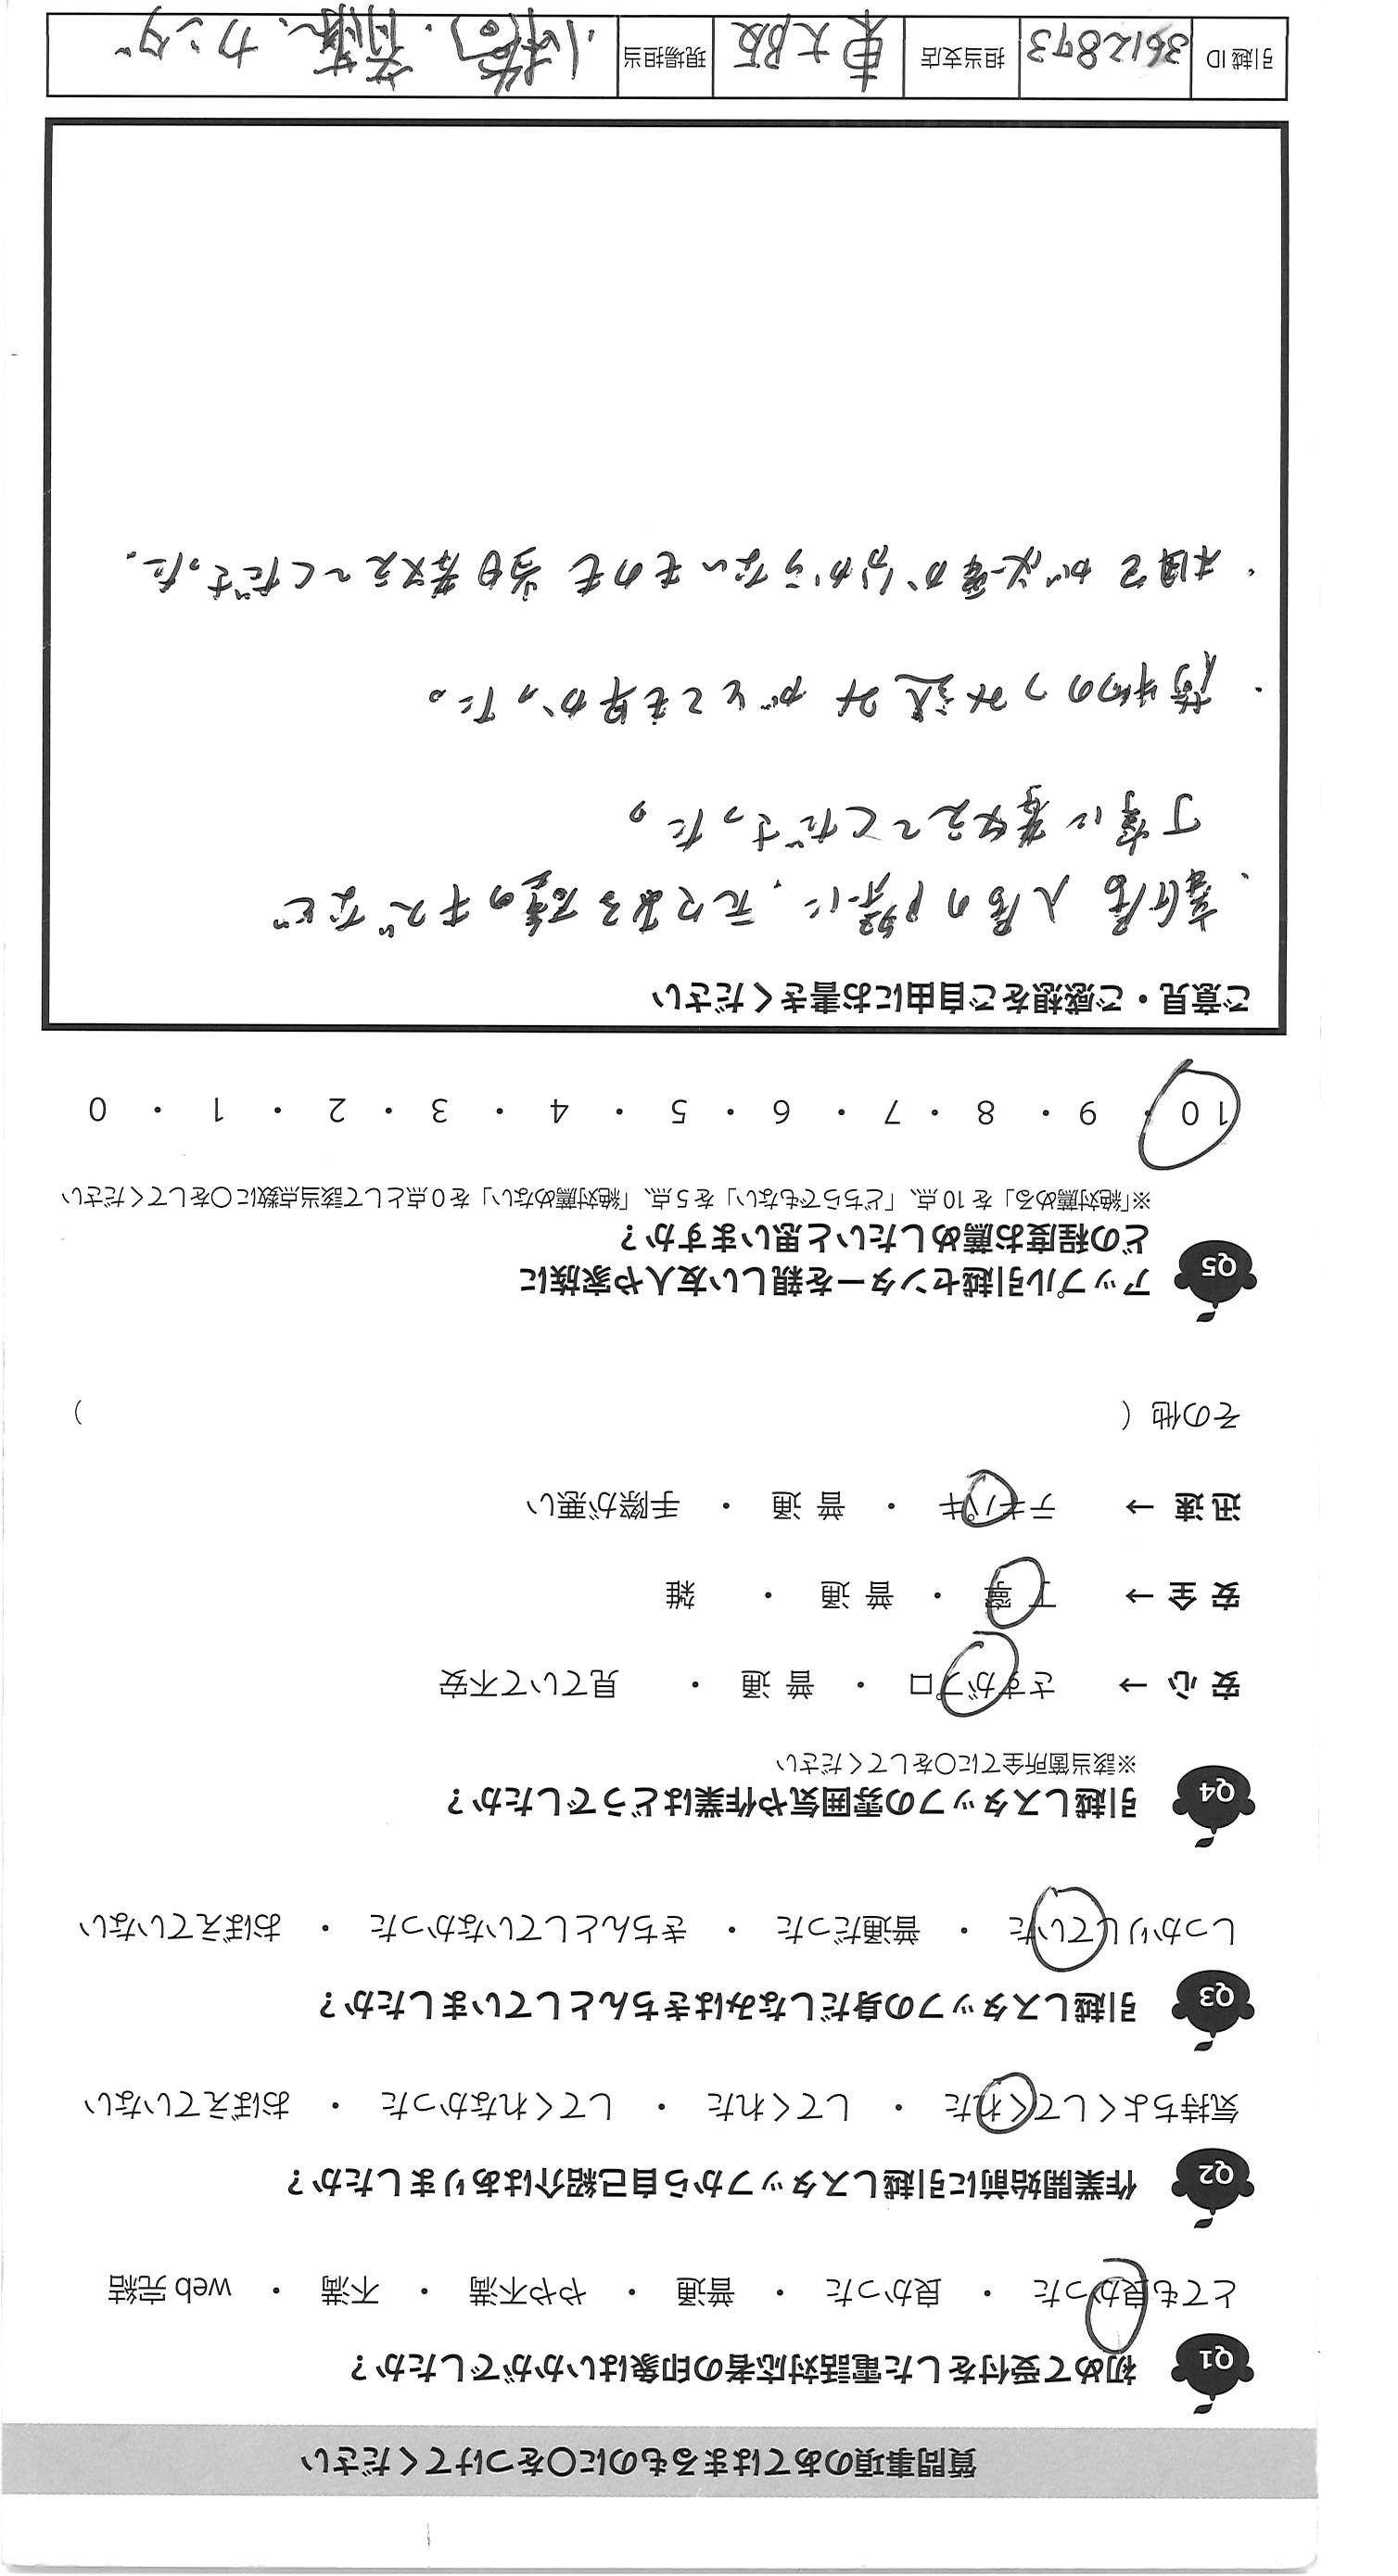 質問事項のあてはまるものに〇をつけてください
Q1 初めて受付をした電話対応者の印象はいかがでしたか？
とても良かった ・ 良かった ・ 普通 ・ やや不満 ・ 不満 ・ web 完結
Q2 作業開始前に引越しスタッフから自己紹介はありましたか？
気持ちよくしてくれた ・ してくれた ・ してくれなかった ・ おぼえていない
Q3 引越しスタッフの身だしなみはきちんとしていましたか？
しっかりしていた ・ 普通だった ・ きちんとしていなかった ・ おぼえていない
Q4 引越しスタッフの雰囲気や作業はどうでしたか？
※該当箇所全てに〇をしてください
安 心 → さすがプロ ・ 普 通 ・ 見ていて不安
安 全 → 丁 寧 ・ 普 通 ・ 雑
迅 速 → テキパキ ・ 普 通 ・ 手際が悪い
その他（ ）
Q5 アップル引越センターを親しい友人や家族に
どの程度お薦めしたいと思いますか？
※「絶対薦める」を 10 点、「どちらでもない」を 5 点、「絶対薦めない」を 0 点として該当点数に〇をしてください
10 ・ 9 ・ 8 ・ 7 ・ 6 ・ 5 ・ 4 ・ 3 ・ 2 ・ 1 ・ 0
ご意見・ご感想をご自由にお書きください
・ 入居の際に、元々ある壁のキズなど
丁寧に教えてくださった。
・荷物のつみ込みがとても早かった。
・梱包が必要か分からないものも当日教えてくださった。
引越 ID 3612893 担当支店 東大阪 現場担当 小橋 斉藤、カンダ